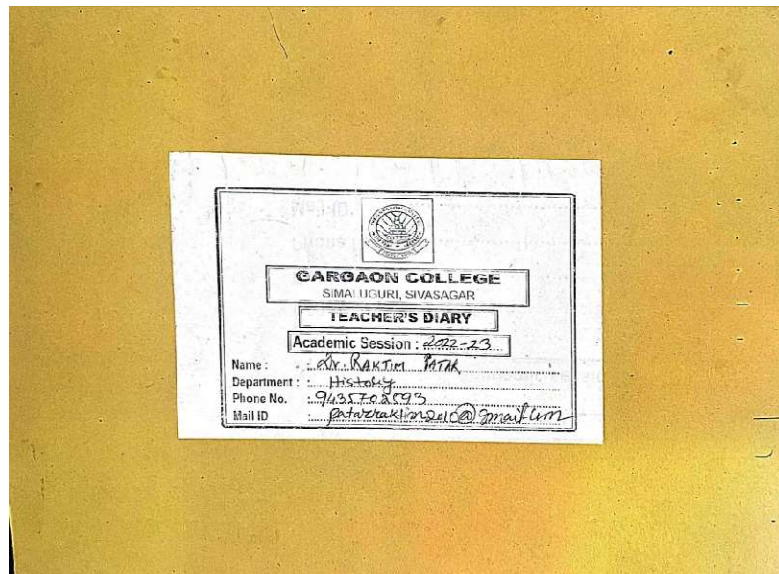 GARGAON COLLEGE
SIMALUGURI, SIVASAGAR
TEACHER'S DIARY
Academic Session : 2022-23
Name : Dr. RAKTIM PATAR
Department : History
Phone No. : 9435702593
Mail ID : patarraktim2010@gmail.com